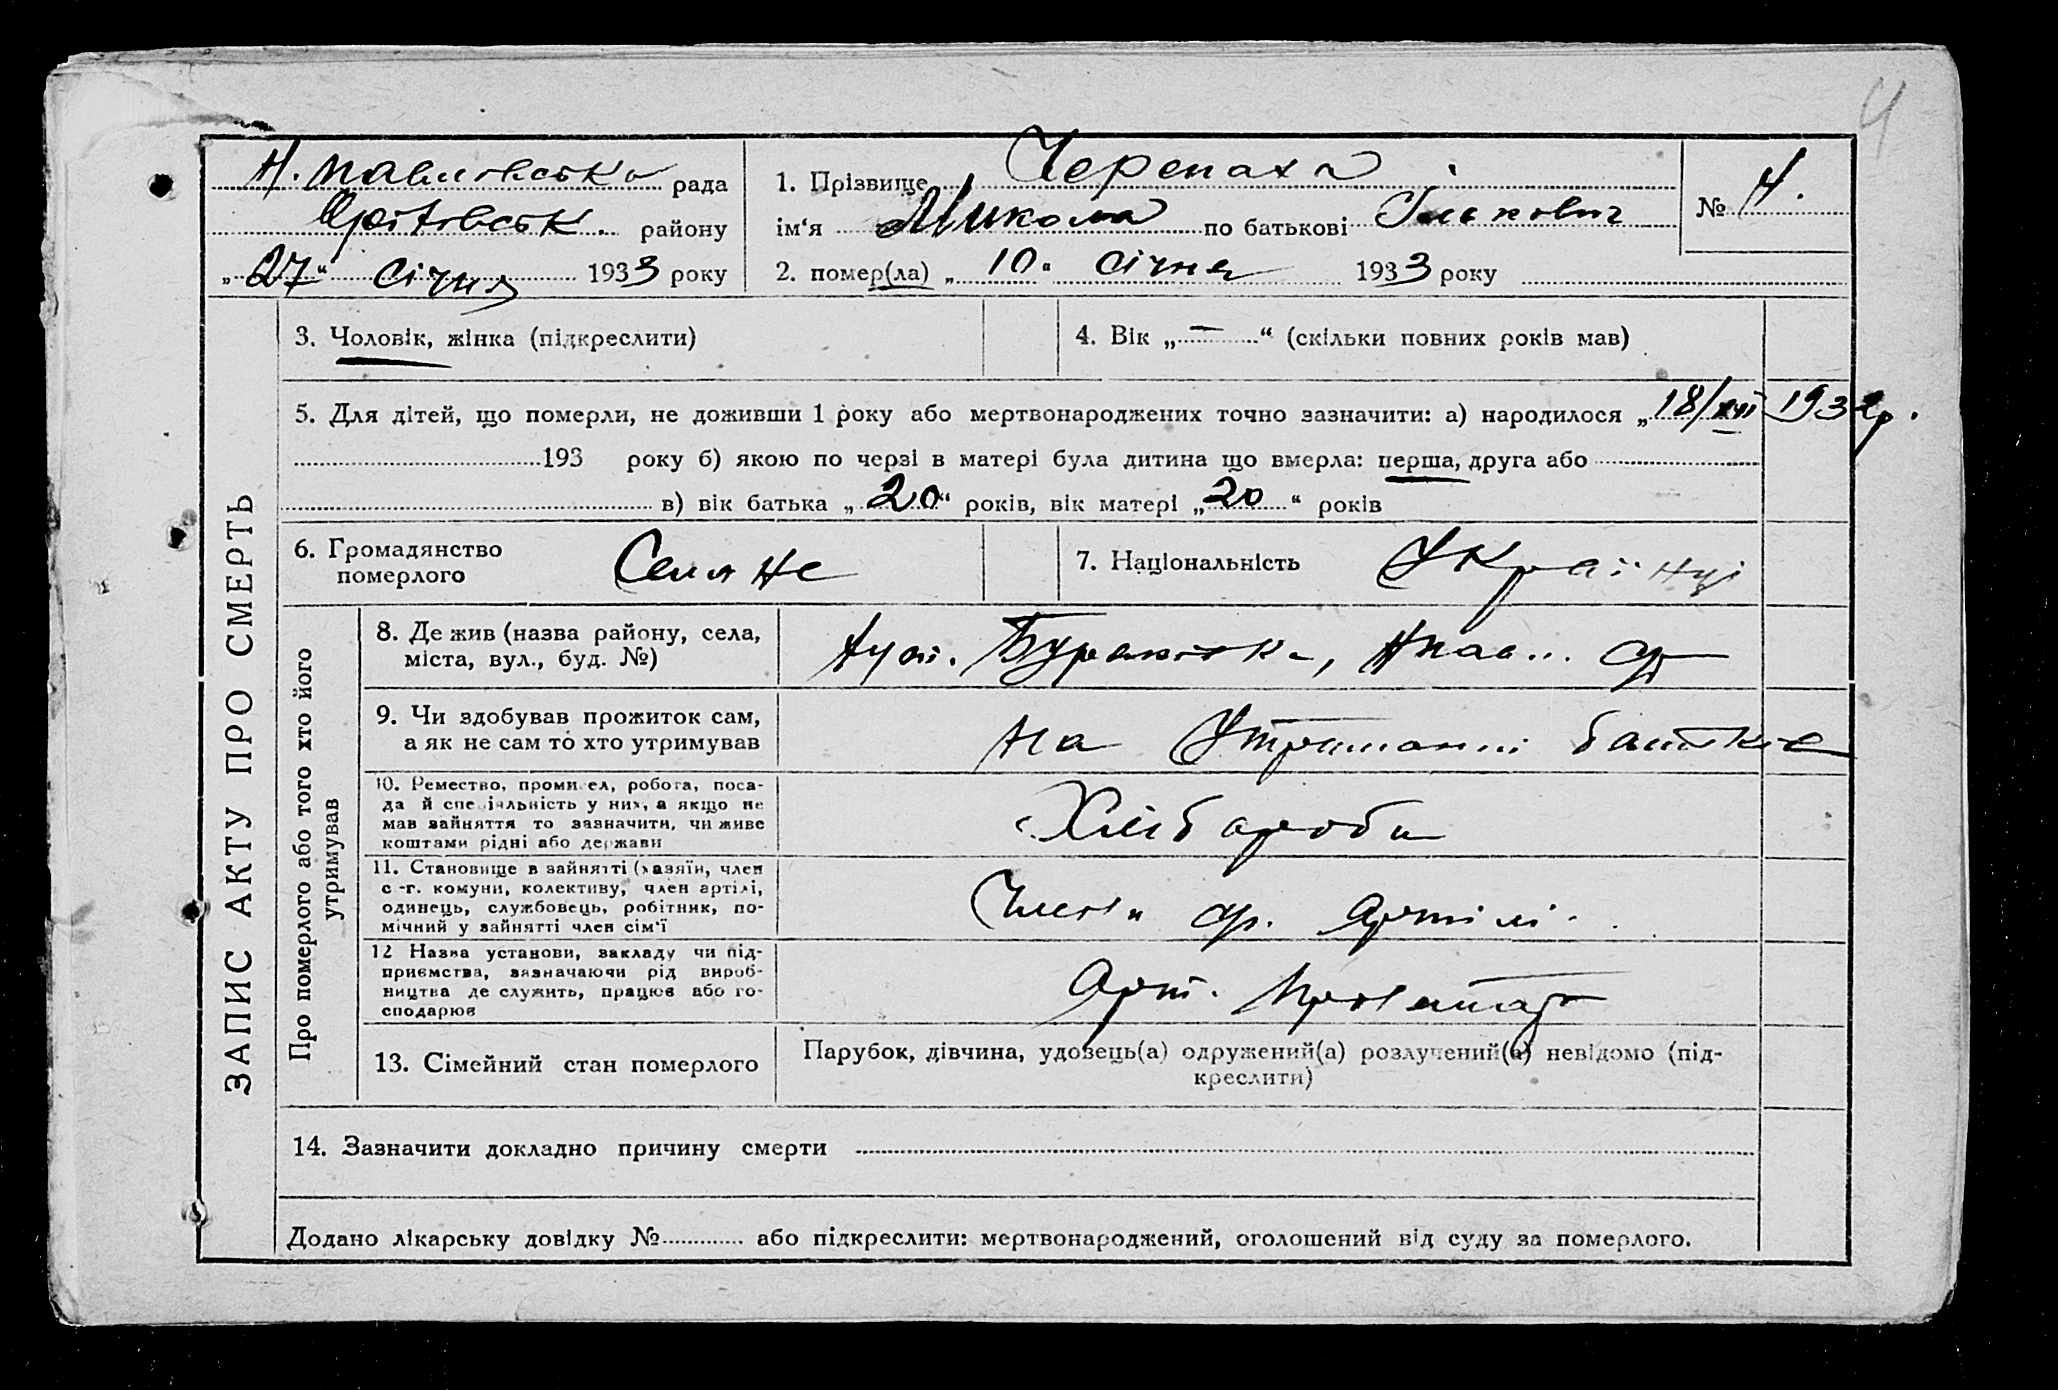 4
Н. Павловська рада
Оратовськ. району
„27“ Січня 1933 року
1. Прізвище Черепаха
ім‘я Микола по батькові Ількович
2. помер(ла) „10“ січня 1933 року
№ 4.
ЗАПИС АКТУ ПРО СМЕРТЬ
3. Чоловік, жінка (підкреслити)
4. Вік „—“ (скільки повних років мав)
5. Для дітей, що померли, не доживши 1 року або мертвонароджених точно зазначити: а) народилося „18/XII 1932 р.
193 року б) якою по черзі в матері була дитина що вмерла: перша, друга або
в) вік батька „20“ років, вік матері „20“ років
6. Громадянство
померлого
Селяне
7. Національність Українці
Про померлого або того хто його
утримував
8. Де жив (назва району, села,
міста, вул., буд. №)
9. Чи здобував прожиток сам,
а як не сам то хто утримував
на Утриманні батьків
10. Ремество, промисел, робота, поса-
да й спеціяльність у них, а якщо не
мав зайняття то зазначити, чи живе
коштами рідні або держави
Хлібароби
11. Становище в зайнятті (хазяїн, член
с.-г. комуни, колективу, член артілі,
одинець, службовець, робітник, по-
мічний у зайнятті член сім‘ї
Члени ср. Артілі.
12 Назва установи, закладу чи під-
приємства, зазначаючи рід вироб-
ництва де служить, працює або го-
сподарює
Арт. Пролетар
13. Сімейний стан померлого
Парубок, дівчина, удовець(а) одружений(а) розлучений(а) невідомо (під-
креслити)
14. Зазначити докладно причину смерти
Додано лікарську довідку № або підкреслити: мертвонароджений, оголошений від суду за померлого.